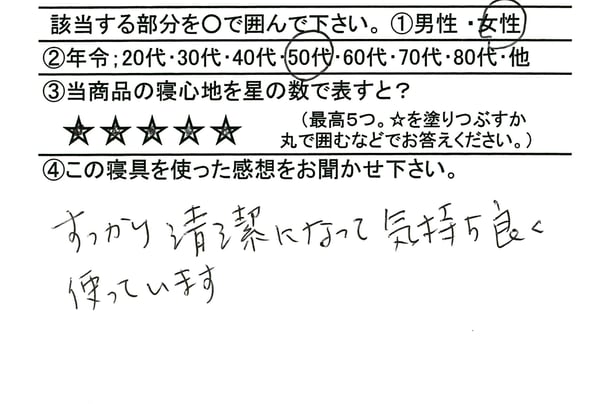 該当する部分を〇で囲んで下さい。①男性・女性
②年令;20代・30代・40代・50代・60代・70代・80代・他
③当商品の寝心地を星の数で表すと?
★★★★★
(最高5つ。☆を塗りつぶすか
丸で囲むなどでお答えください。)
④この寝具を使った感想をお聞かせ下さい。
すっかり清潔になって気持ち良く
使っています